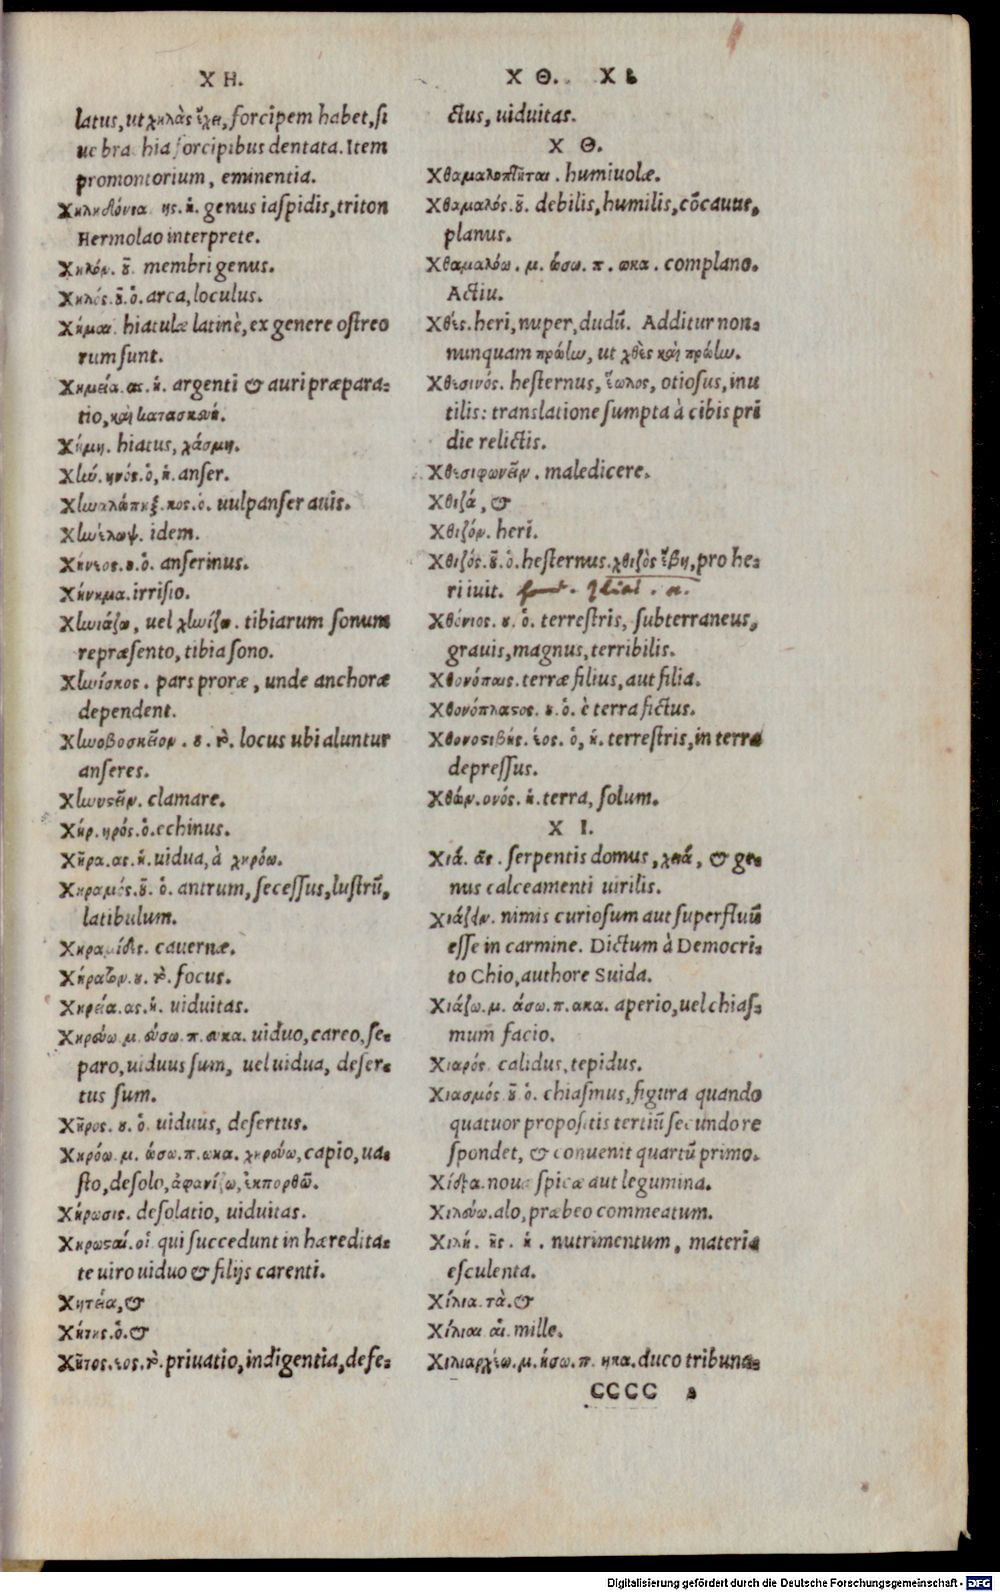 Χ Η.
latus, ut χηλὰς ἔχει, forcipem habet, si
ue bra hia forcipibus dentata. Item
promontorium, eminentia.
Χηλιδόνια ης. ἡ. genus iaspidis, triton
Hermolao interprete.
Χηλόν. ȣ̃. membri genus.
Χηλός. ȣ̃. ὁ. arca, loculus.
Χήμαι hiatulæ latinè, ex genere ostreo
rum sunt.
Χημεία. ας. ἡ. argenti & auri præpara-
tio, καὶ κατασκευή.
Χήμη. hiatus, χάσμη.
Χlώ. ηνός. ὁ, ἡ. anser.
Χlωαλώπηξ. κος. ὁ. uulpanser auis.
Χlωέλωψ. idem.
Χήνεος. ȣ. ὁ. anserinus.
Χήνημα. irrisio.
Χlωιάζω, uel χlωίζω. tibiarum sonum
repræsento, tibia sono.
Χlωίσκος. pars proræ, unde anchoræ
dependent.
Χlωοβοσκεῖον. ȣ. τό. locus ubi aluntur
anseres.
Χlωυστεῖν. clamare.
Χήρ. ηρός. ὁ. echinus.
Χῆρα. ας. ἡ. uidua, à χηρόω.
Χηραμός. ȣ̃. ὁ. antrum, secessus, lustrũ,
latibulum.
Χηραμίδες. cauernæ.
Χήρατον. ȣ. τό. focus.
Χηρεία. ας. ἡ. uiduitas.
Χηρεύω. μ. εύσω. π. ευκα. uiduo, careo, se-
paro, uiduus sum, uel uidua, deser-
tus sum.
Χῆρος. ȣ. ὁ. uiduus, desertus.
Χηρόω. μ. ώσω. π. ωκα. χηρεύω, capio, ua-
sto, desolo, ἀφανίζω, ἐκπορθῶ.
Χήρωσις. desolatio, uiduitas.
Χηρωσταί. οἱ qui succedunt in hæredita-
te uiro uiduo & filijs carenti.
Χητεία, &
Χήτης. ὁ. &
Χῆτος. εος. τό. priuatio, indigentia, defe-
Χ Θ. Χ Ι
ctus, uiduitas.
Χ Θ.
Χθαμαλοπτῆται. humiuolæ.
Χθαμαλός. ȣ̃. debilis, humilis, cõcauus,
planus.
Χθαμαλόω. μ. ώσω. π. ωκα. complano.
Actiu.
Χθές. heri, nuper, dudũ. Additur non-
nunquam πρώlω, ut χθὲς καὶ πρώlω.
Χθεσινός. hesternus, ἕωλος, otiosus, inu
tilis: translatione sumpta à cibis pri
die relictis.
Χθεσιφωνεῖν. maledicere.
Χθιζά, &
Χθιζόν. heri.
Χθιζός. ȣ̃. ὁ. hesternus. χθιζὸς ἔβη, pro he-
ri iuit.
Χθόνιος. ȣ. ὁ. terrestris, subterraneus,
grauis, magnus, terribilis.
Χθονόπαις. terræ filius, aut filia.
Χθονόπλαστος. ȣ. ὁ. è terra fictus.
Χθονοστιβής. έος. ὁ, ἡ. terrestris, in terra
depressus.
Χθών. ονός. ἡ. terra, solum.
Χ Ι.
Χιά. ᾶς. serpentis domus, χειά, & ge-
nus calceamenti uirilis.
Χιάζειν. nimis curiosum aut superfluũ
esse in carmine. Dictum à Democri-
to Chio, authore Suida.
Χιάζω. μ. άσω. π. ακα. aperio, uel chias-
mum facio.
Χιαρός. calidus, tepidus.
Χιασμός. ȣ̃ ὁ. chiasmus, figura quando
quatuor propositis tertiũ secundo re
spondet, & conuenit quartũ primo.
Χίδρα. noua spicæ aut legumina.
Χιλεύω. alo, præbeo commeatum.
Χιλή. ῆς. ἡ. nutrimentum, materia
esculenta.
Χίλια. τὰ. &
Χίλιαι αἱ. mille.
Χιλιαρχέω. μ. ήσω. π. ηκα. duco tribuna-
CCCC
Digitalisierung gefördert durch die Deutsche Forschungsgemeinschaft - DFG